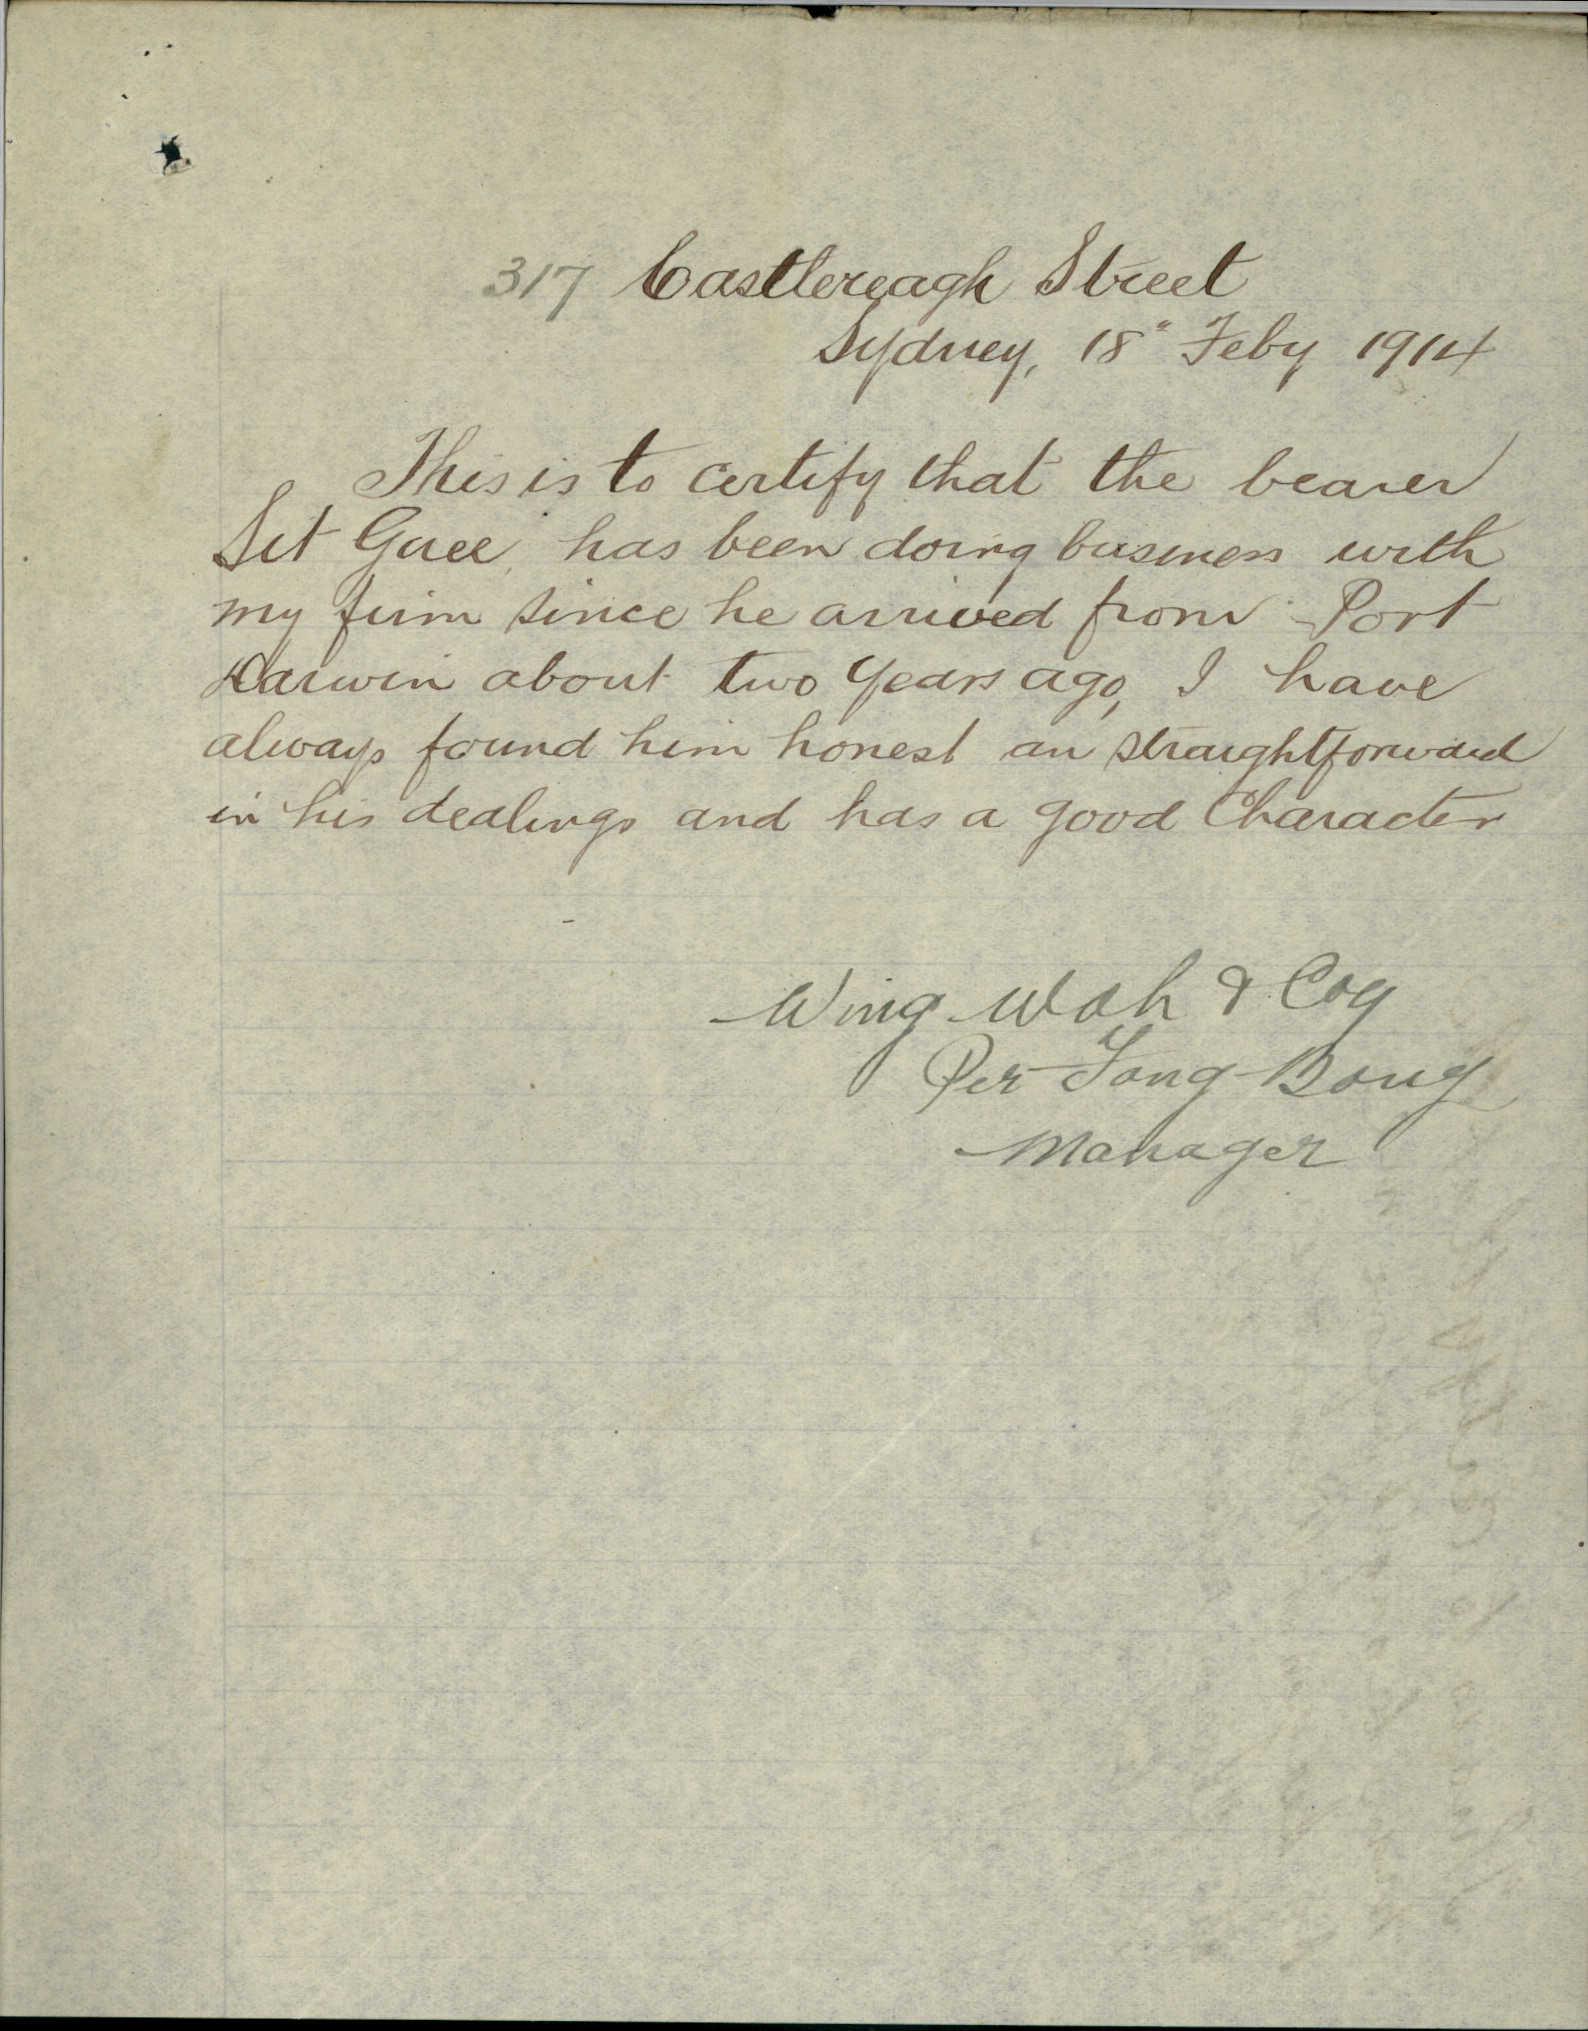 317 Castlereagh Street
Sydney, 18" Feby 1914
This is to certify that the bearer
Sit Guee, has been doing business with
my firm since he arrived from Port
Darwin about two years ago, I have
always found him honest an straightforward
in his dealings and has a good Character
Wing Wah & Coy
Per Fong Boug
Manager